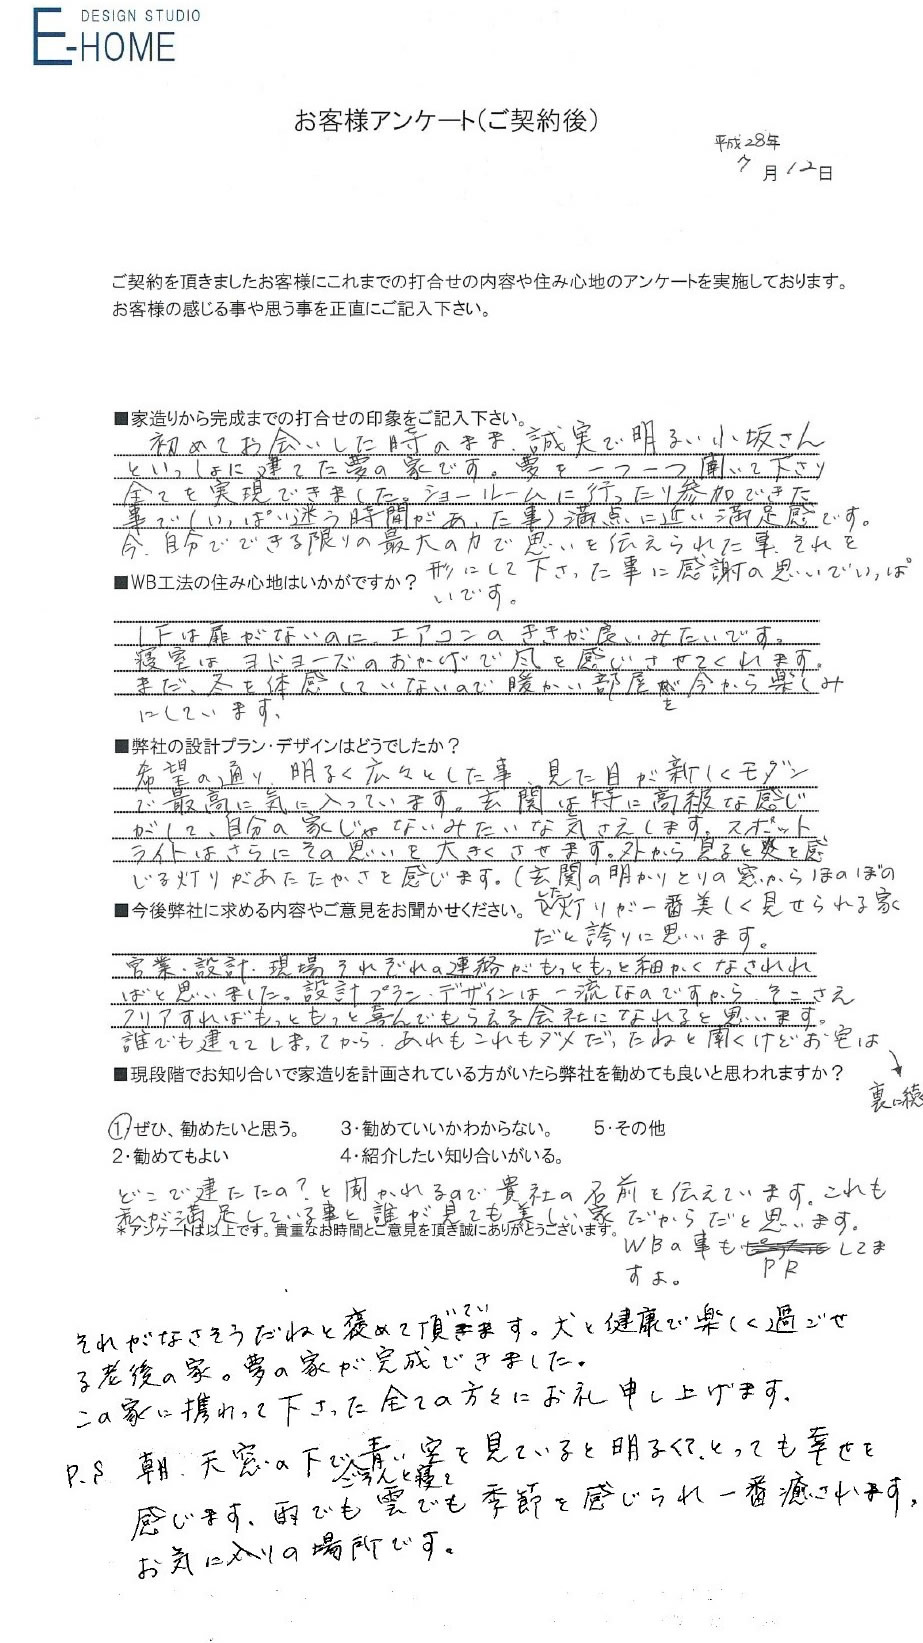 DESIGN STUDIO
E-HOME
お客様アンケート(ご契約後)
平成28年
7月12日
ご契約を頂きましたお客様にこれまでの打合せの内容や住み心地のアンケートを実施しております。
お客様の感じる事や思う事を正直にご記入下さい。
■家造りから完成までの打合せの印象をご記入下さい。
初めてお会いした時のまま、誠実で明るい小坂さん
といっしょに建てた夢の家です。夢を一つ一つ聞いて下さり
全てを実現できました。ショールームに行ったり参加できた
事で(いっぱい迷う時間があった事)満点に近い満足感です。
今、自分でできる限りの最大の力で思いを伝えられた事、それを
形にして下さった事に感謝の思いでいっぱ
いです。
■WB工法の住み心地はいかがですか?
1Fは扉がないのに、エアコンのききが良いみたいです。
寝室は、ヨドコーズのおかげで風を感じさせてくれます。
まだ、冬を体感していないので暖かい部屋を今から楽しみ
にしています。
■弊社の設計プラン・デザインはどうでしたか?
希望の通り、明るく広々とした事、見た目が新しくモダン
で最高に気に入っています。玄関は特に高級な感じ
がして、自分の家じゃないみたいな気さえします。スポット
ライトはさらにその思いを大きくさせます。外から見ると感
じる灯りがあたたかさを感じます。(玄関の明かりとりの窓からほのぼの
した灯りが一番美しく見せられる家
だと誇りに思います。
■今後弊社に求める内容やご意見をお聞かせください。
営業・設計・現場それぞれの連絡がもっともっと細かくなされれ
ばと思いました。設計プラン・デザインは一流なのですから、そこさえ
クリアすればもっともっと喜んでもらえる会社になれると思います。
誰でも建ててしまってから、あれもこれもダメだったねと聞くけどお宅は
→裏に続
■現段階でお知り合いで家造りを計画されている方がいたら弊社を勧めても良いと思われますか?
1・ぜひ、勧めたいと思う。 3・勧めていいかわからない。 5・その他
2・勧めてもよい 4・紹介したい知り合いがいる。
どこで建たたの?と聞かれるので貴社の名前を伝えています。これも
私が満足している事と誰が見ても美しい家だからだと思います。
*アンケートは以上です。貴重なお時間とご意見を頂き誠にありがとうございます。
WBの事もPRしてま
すよ。
それがなさそうだねと褒めて頂いています。犬と健康で楽しく過ごせ
る老後の家。夢の家が完成できました。
この家に携わって下さった全ての方々にお礼申し上げます。
P.S 朝、天窓の下でごろんと寝て青い空を見ていると明るくて、とっても幸せを
感じます、雨でも雲でも季節を感じられ一番癒されます。
お気に入りの場所です。